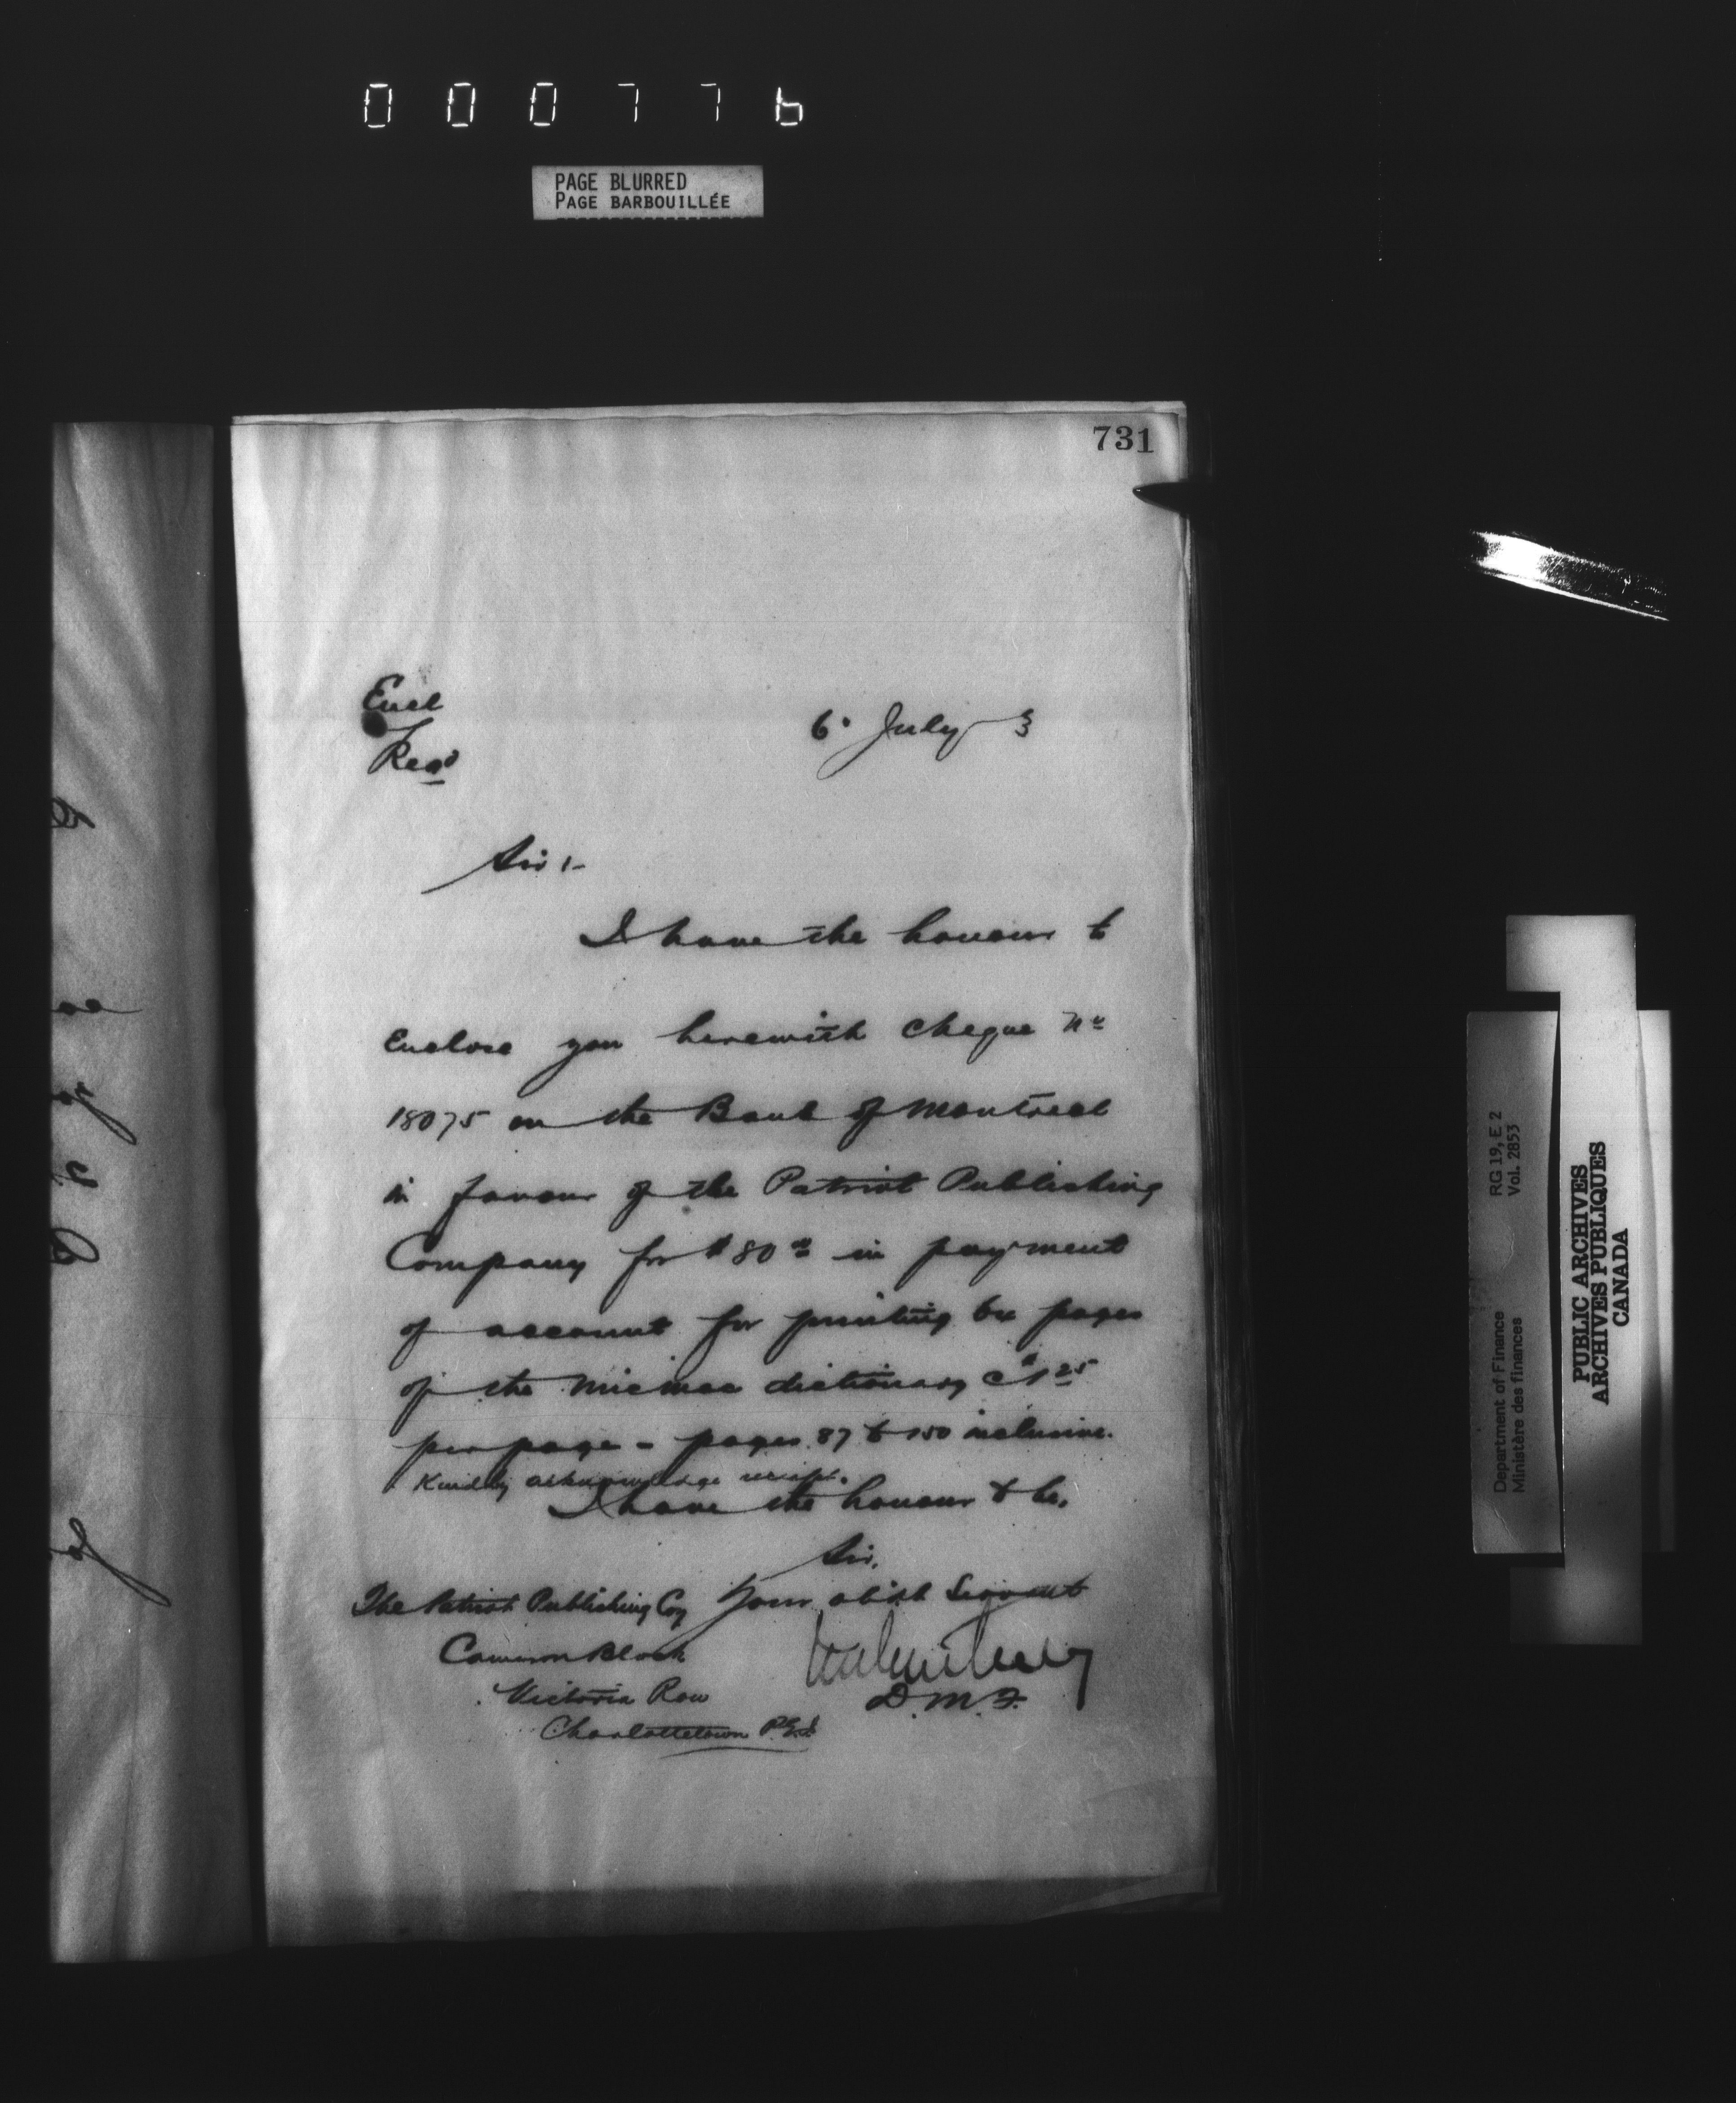 000776
PAGE BLURRED
PAGE BARBOUILLÉE
731
Encl
Regd
6. July 3
Sir :-
I have the honour to
Enclose you herewith cheque No
18075 on the Bank of Montreal
in favour of the Patriot Publishing
Company for $80 00 in payment
of account for printing 64 pages
of the Micmac dictionary @ $1 25
per page - pages 87 to 150 inclusive.
Kindly acknowledge receipt.
I have the honour to be,
Sir,
Your obdt Servant
D.M.F.
The Patriot Publishing Coy
Cameron Block
Victoria Row
Charlottetown P.E.I.
RG 19, E 2
Vol. 2853
Department of Finance
Ministère des finances
PUBLIC ARCHIVES
ARCHIVES PUBLIQUES
CANADA